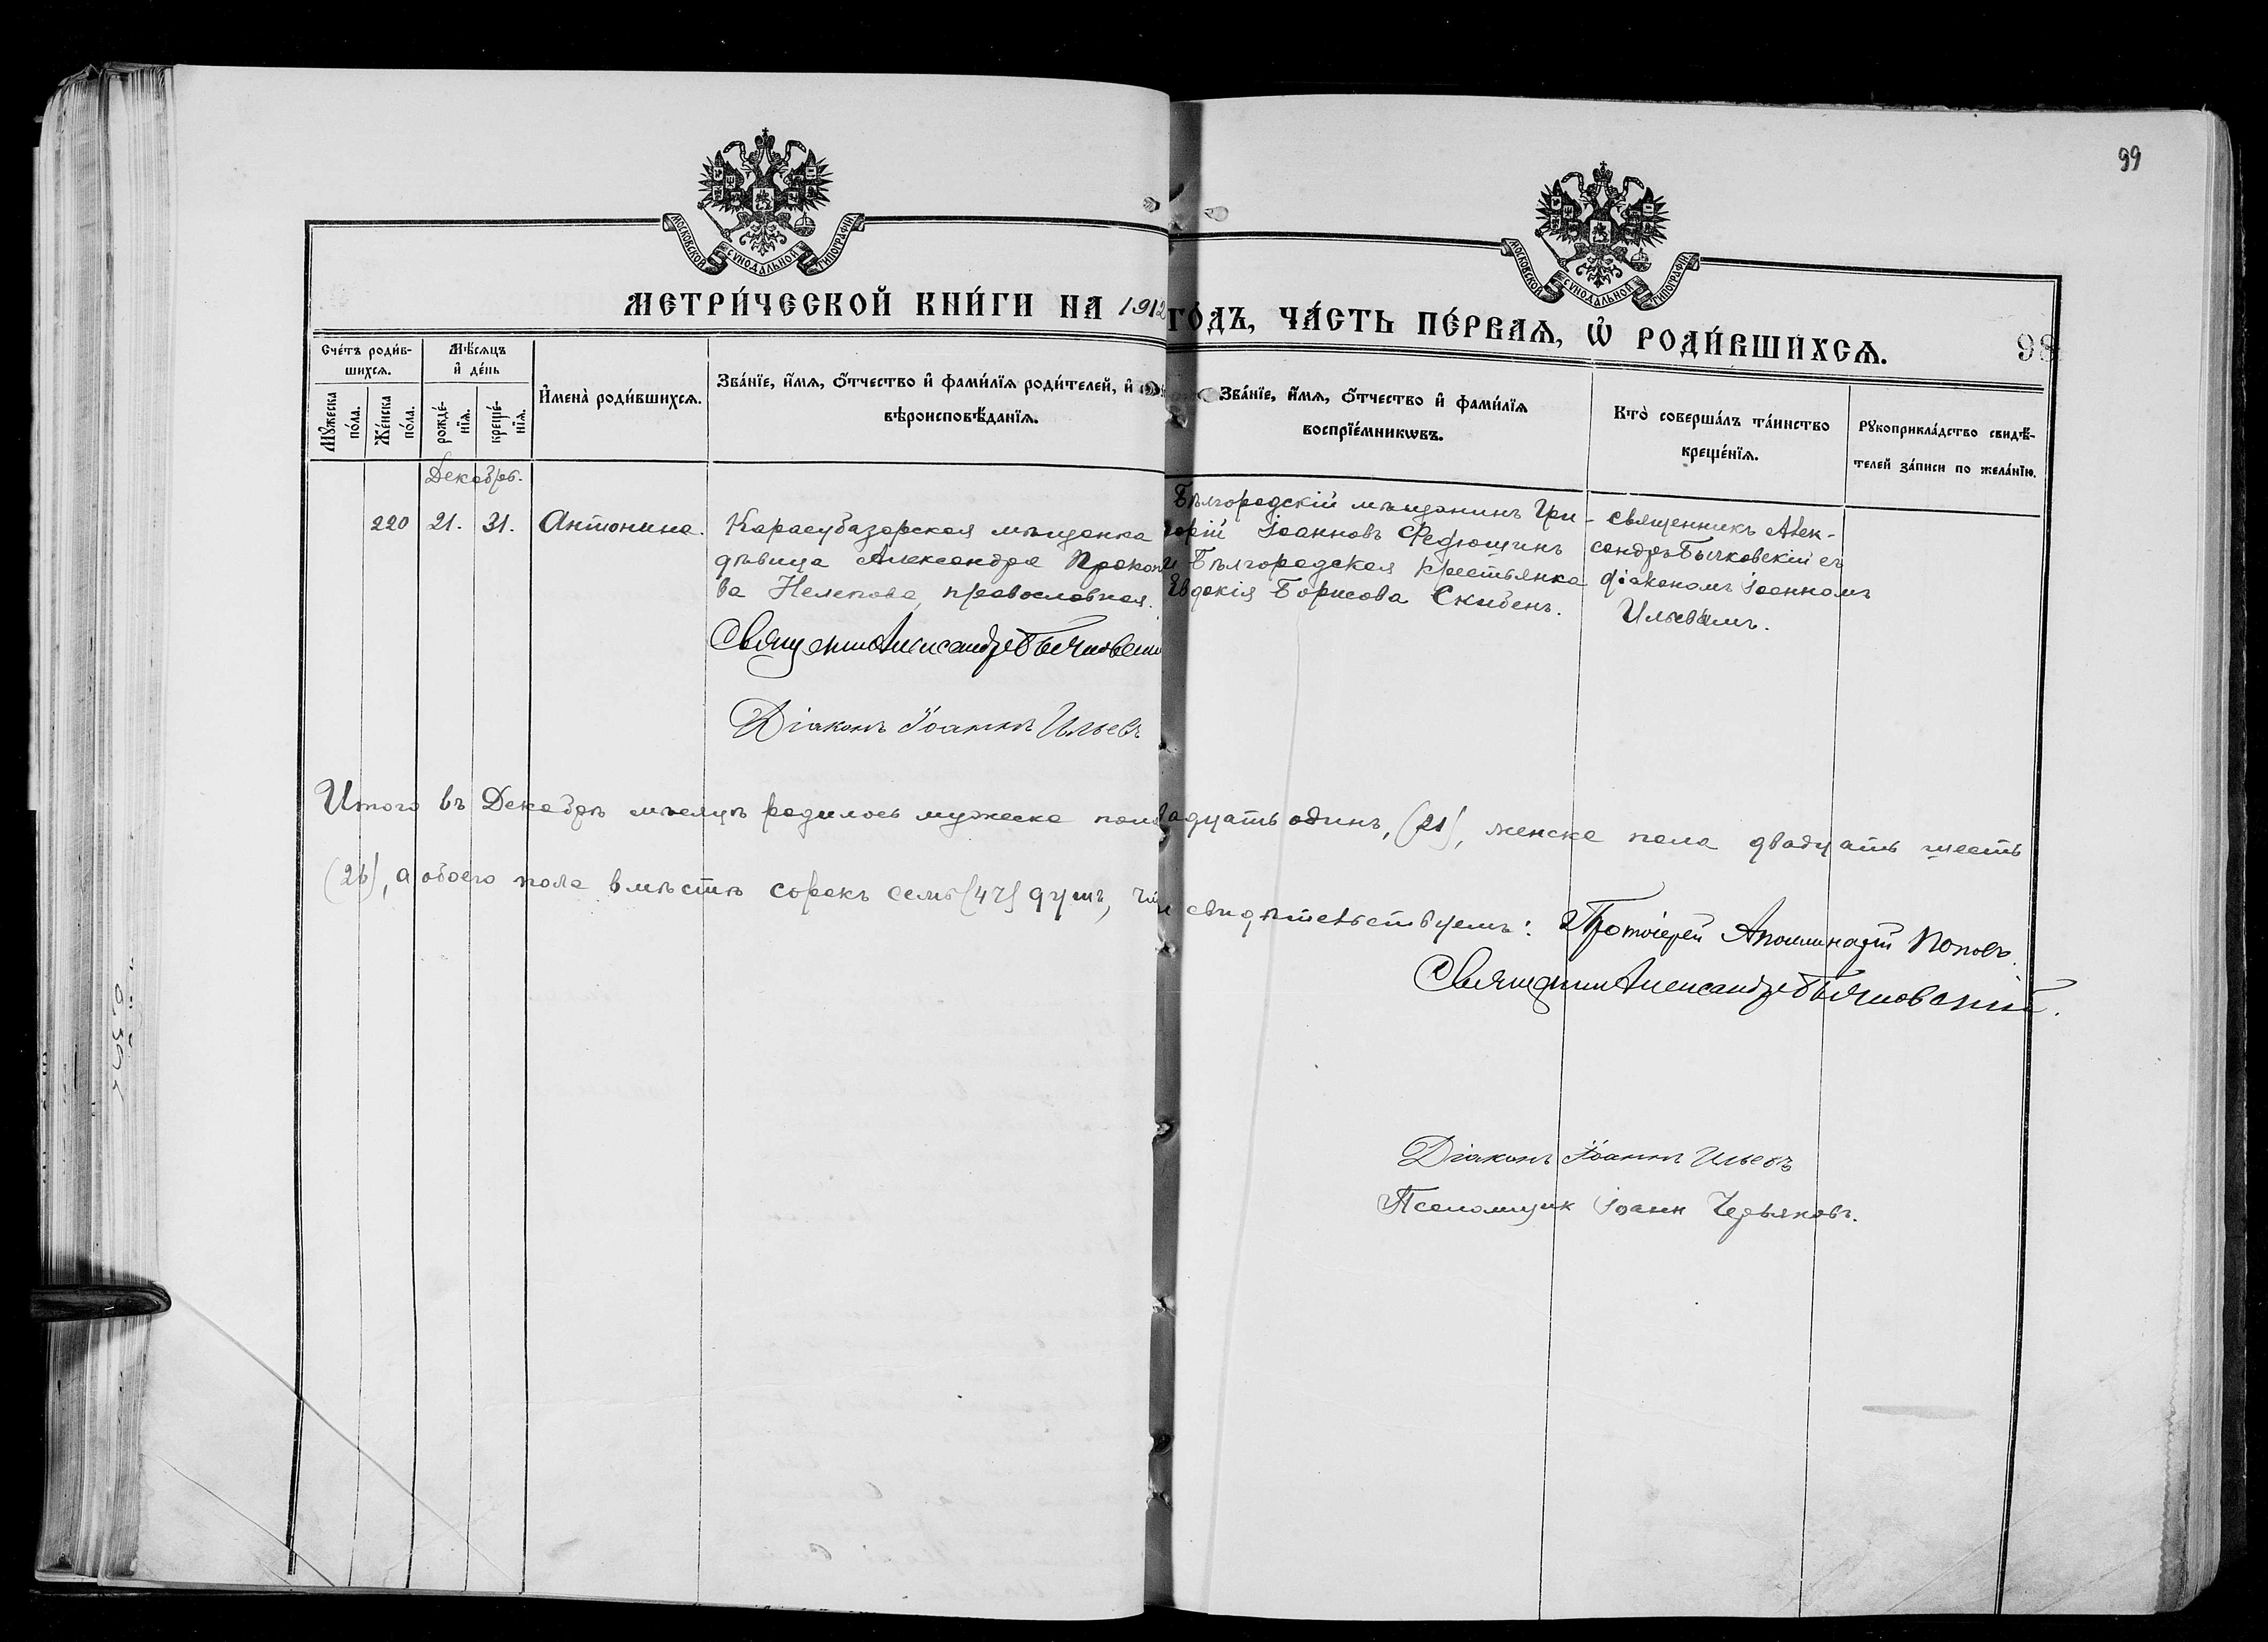 99
МОСКОВСКОЙ СѴНОДАЛЬНОЙ ТИПОГРАФІИ
МОСКОВСКОЙ СѴНОДАЛЬНОЙ ТИПОГРАФІИ
МЕТРИ́ЧЕСКОЙ КНИ́ГИ НА 1912 ГО́ДЪ, ЧА́СТЬ ПЕ́РВАѦ, Ѡ҆ РОДИ́ВШИХСѦ.
98
Сче́тъ роди́в-
шихсѧ.
Мꙋ́жеска по́ла.
Же́нска по́ла.
Мѣ́сѧцъ
и҆ де́нь
рожде́-
нїѧ.
креще́-
нїѧ.
И҆мена̀ роди́вшихсѧ.
Зва́нїе, и҆́мѧ, ѻ҆́тчество и҆ фами́лїѧ роди́телей, и҆
вѣроисповѣ́данїѧ.
Зва́нїе, и҆́мѧ, ѻ҆́тчество и҆ фами́лїѧ
воспрїе́мникѡвъ.
Кто̀ соверша́лъ та́инство
креще́нїѧ.
Рꙋкоприкла́дство свидѣ́-
телей за́писи по жела́нїю.
Декабрь.
220 21. 31. Антонина.
Карасубазарская мѣщанка
дѣвица Александра Прокопи
ва Нелепова, православная.
Священник Александр Бычковский
Діаконъ Іоаннъ Ильевъ
Бѣлгородскій мѣщанинъ Гри-
горій Іоанновъ Федюшинъ
и Бѣлгородская крестьянка
Евдокія Борисова Скибенъ.
Священникъ Алек-
сандръ Бычковскій съ
діакономъ Іоанномъ
Ильевымъ.
Итого въ Декабрѣ мѣсяцѣ родилось мужеска пола двадцать одинъ, (21), женска пола двадцать шесть
(26), а обоего пола вмѣстѣ сорокъ семь (47) душъ, чт свидѣтельствуемъ: Протоіерей Аполлинарій Поповъ.
Священник Александр Бычковский.
Діаконъ Іоаннъ Ильевъ
Псаломщик Іоанн Червяковъ.